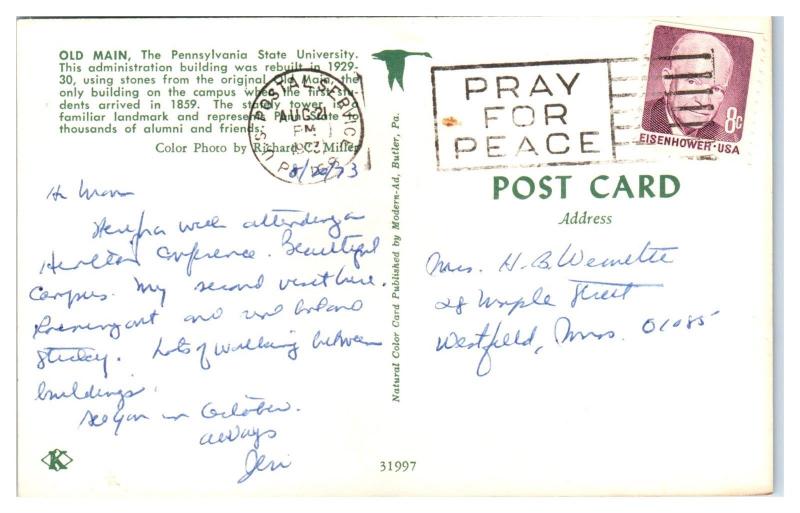 OLD MAIN, The Pennsylvania State University.
This administration building was rebuilt in 1929-
30, using stones from the original Old Main, the
only building on the campus when the first stu-
dents arrived in 1859. The stately tower is a
familiar landmark and represents Penn State to
thousands of alumni and friends.
Color Photo by Richard C. Miller
U.S. POSTAL SERVICE
AUG 21
PM
1973
PRAY
FOR
PEACE
8c
EISENHOWER·USA
8/20/73
Hi Mom
Here for week attending a
Conference. Beautiful
Campus. My second visit here.
and
Lots of walking between
buildings.
See you in October.
always
Jeri
Natural Color Card Published by Modern-Ad, Butler, Pa.
POST CARD
Address
Mrs. H. B.
28 Maple Street
Westfield, Mass. 01085
K
31997